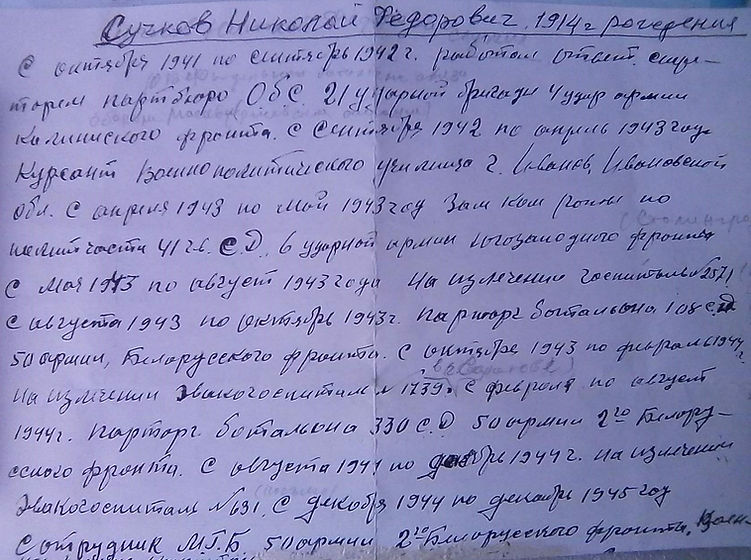 Сучков Николай Федорович. 1914 г рождения
С октября 1941 по сентябрь 1942 г. работал ответ. секре-
тарем партбюро ОбС. 21 ударной бригады 4 удар армии
Калининского фронта. С Сентября 1942 по апрель 1943 года
Курсант Военнополитического училища г. Иванов, Ивановской
Обл. С апреля 1943 по Май 1943 год Зам Ком роты по
политчасти С.Д., 6 ударной армии Югозападного фронта
С Мая 1943 по август 1943 года На излечении госпиталь №2571
С августа 1943 по октябрь 1943 г. парторг батальона 108 с.д
50 армии, Белорусского фронта. С октября 1943 по февраль 1944 г.
На излечении Эвакогоспиталь 1739. С февраля по август
1944 г. парторг батальона 330 С.Д 50 армии 2го Белору-
сского фронта. С августа 1944 по 1944 г. на излечении
Эвакогоспиталь №631. С декабря 1944 по декабрь 1945 год
Сотрудник МГБ 50 армии 2го Белорусского фронта.